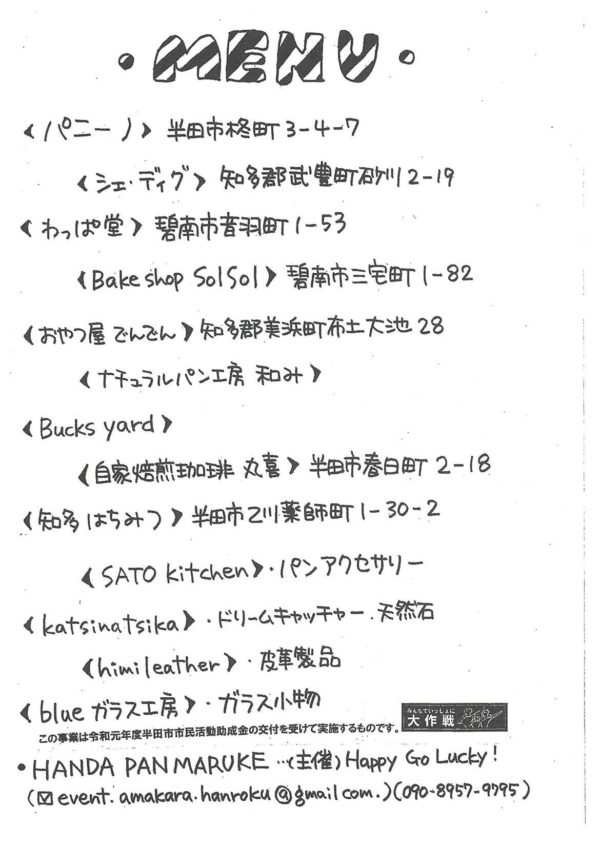 ・MENU・
《パニーノ》 半田市柊町3-4-7
《シェ・ディグ》 知多郡武豊町砂川2-19
《わっぱ堂》 碧南市音羽町1-53
《Bake shop SolSol》 碧南市三宅町1-82
《おやつ屋 でんでん》 知多郡美浜町布土大池28
《ナチュラルパン工房 和み》
《Bucks yard》
《自家焙煎珈琲 丸喜》 半田市春日町2-18
《知多はちみつ》 半田市乙川薬師町1-30-2
《SATO kitchen》・パンアクセサリー
《katsinatsika》・ドリームキャッチャー.天然石
《himileather》・皮革製品
《blueガラス工房》・ガラス小物
みんなでいっしょに
大作戦
この事業は令和元年度半田市市民活動助成金の交付を受けて実施するものです。
・HANDA PAN MARUKE…(主催)Happy Go Lucky!
(✉event.amakara.hanroku@gmail.com.)(090-8957-9795)